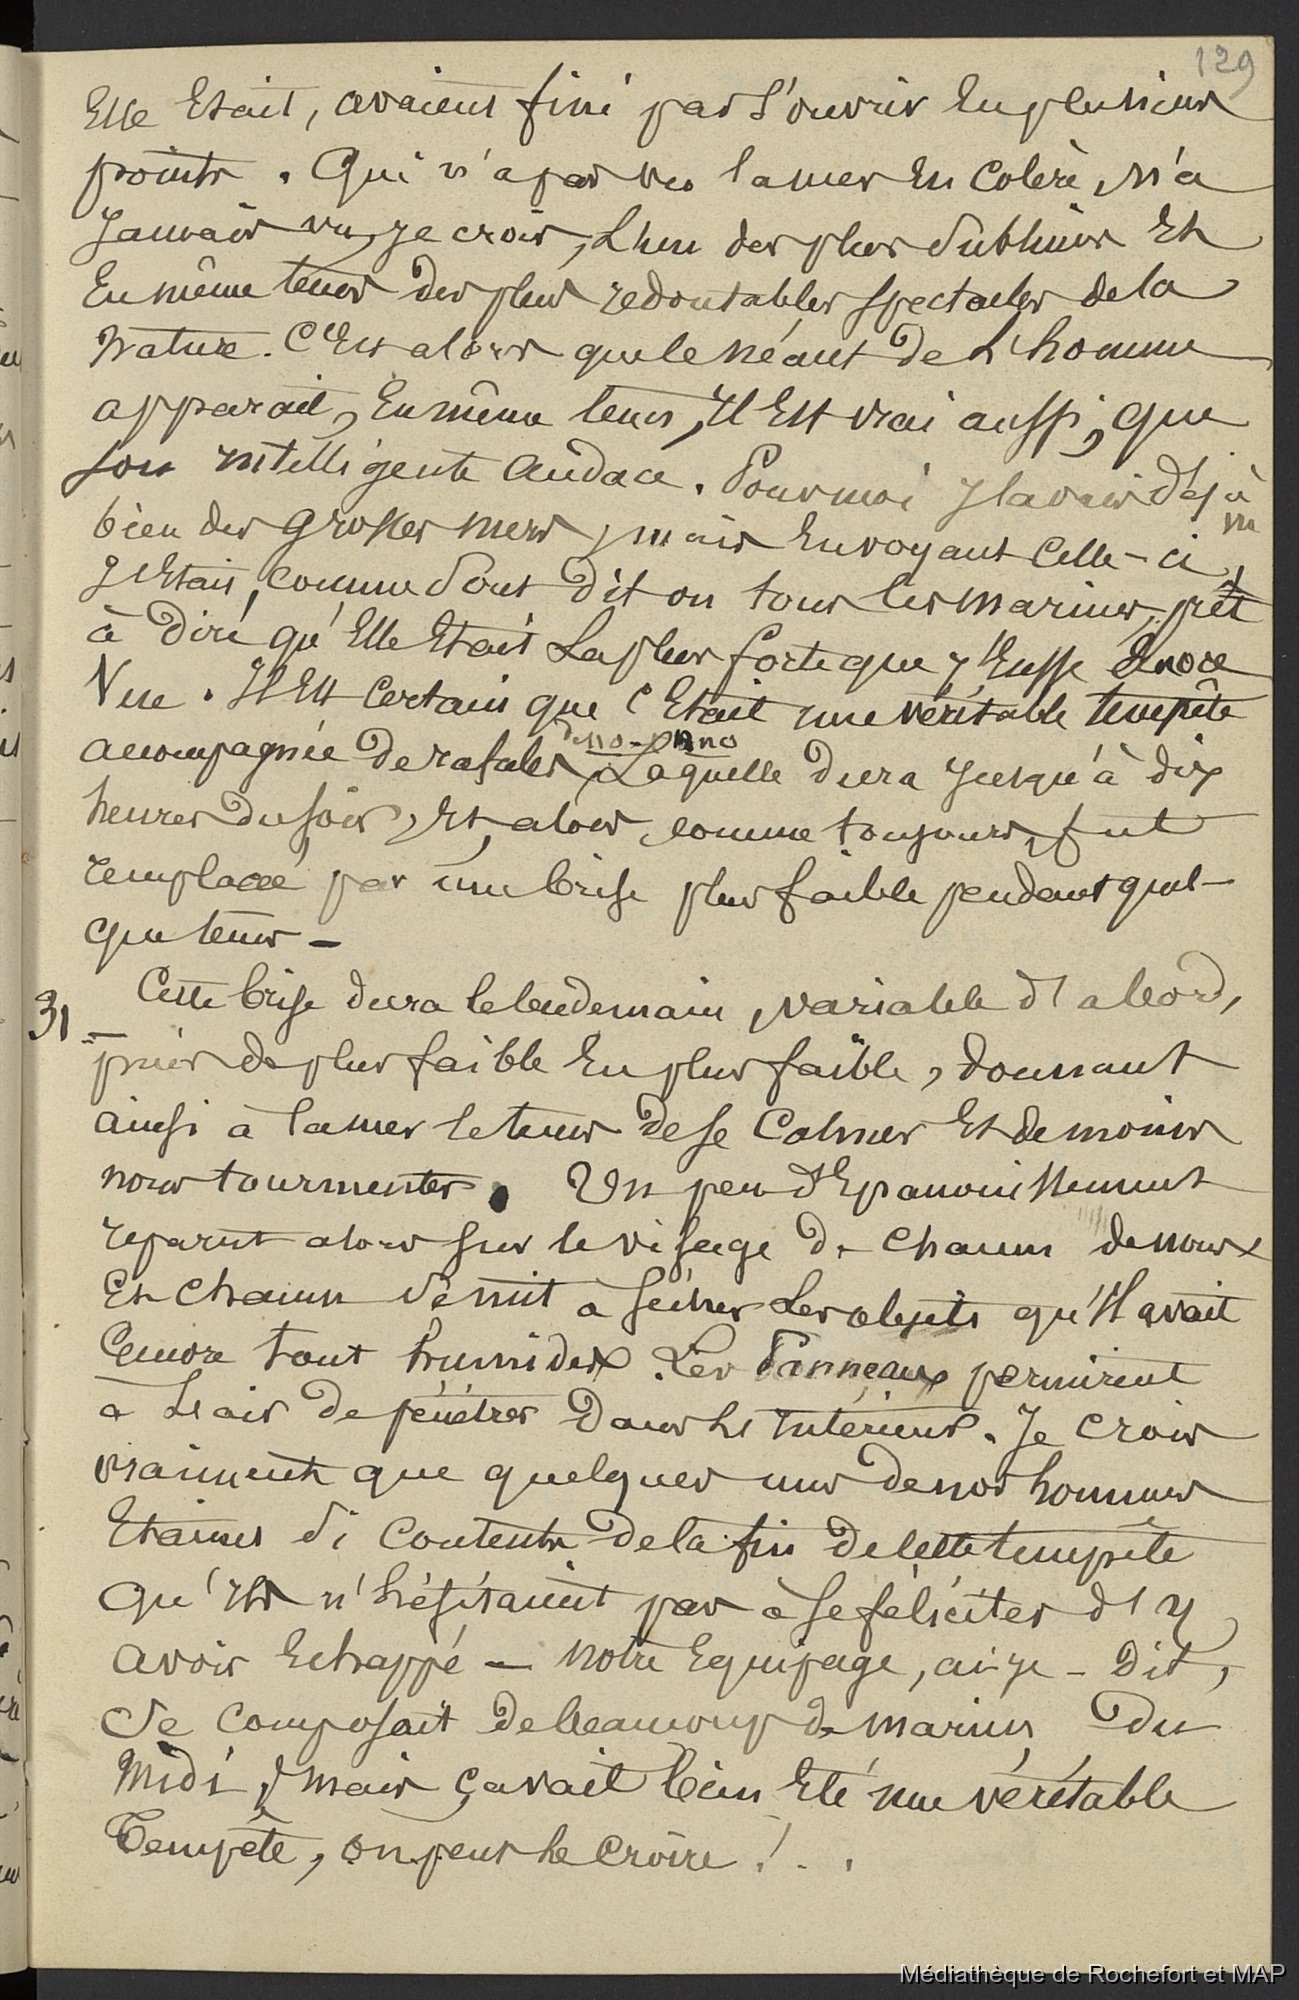 129
Elle Etait, avaient fini par s'ouvrir En plusieurs
points. Qui n'a pas vu la mer En colère, n'a
Jamais vu, je crois, L'un des plus sublimes Et
En même tems des plus redoutables spectacles de la
Nature. C'Est alors que le néant de L'homme
apparait, En même tems, Il Est vrai aussi, que
son intelligente audace. Pour moi J'avais déjà vu
bien des grosses mers, mais En voyant celle-ci,
J'Etais, comme sont dit on tous les marins, prêt
à dire qu'Elle Etait La plus forte que j'Eusse Encore
Vue. Il Est certain que c'Etait une véritable tempête
accompagnée de rafales, Laquelle dura jusqu'à dix
heures du soir, Et, alors, comme toujours, fut
remplacée par une brise plus faible pendant quel-
que tems -
31 - Cette brise dura le lendemain, variable d'abord,
puis de plus faible En plus faible, donnant
ainsi à la mer le tems de se calmer Et de moins
nous tourmenter. Un peu d'Epanouissement
reparut alors sur le visage de chacun de nous
Et chacun se mit à sécher Les objets qu'Il avait
Encore tout humides. Les Panneaux permirent
à L'air de pénétrer Dans les Intérieurs. Je crois
vraiment que quelques uns de nos hommes
Etaient si contents de la fin de cette tempête
qu'Ils n'hésitaient pas à se féliciter d'y
avoir Echappé - Notre Equipage, ai-je-dit,
se composait de beaucoup de marins du
Midi, mais ç'avait bien Eté une véritable
Tempête, on peut le croire !..
Médiathèque de Rochefort et MAP